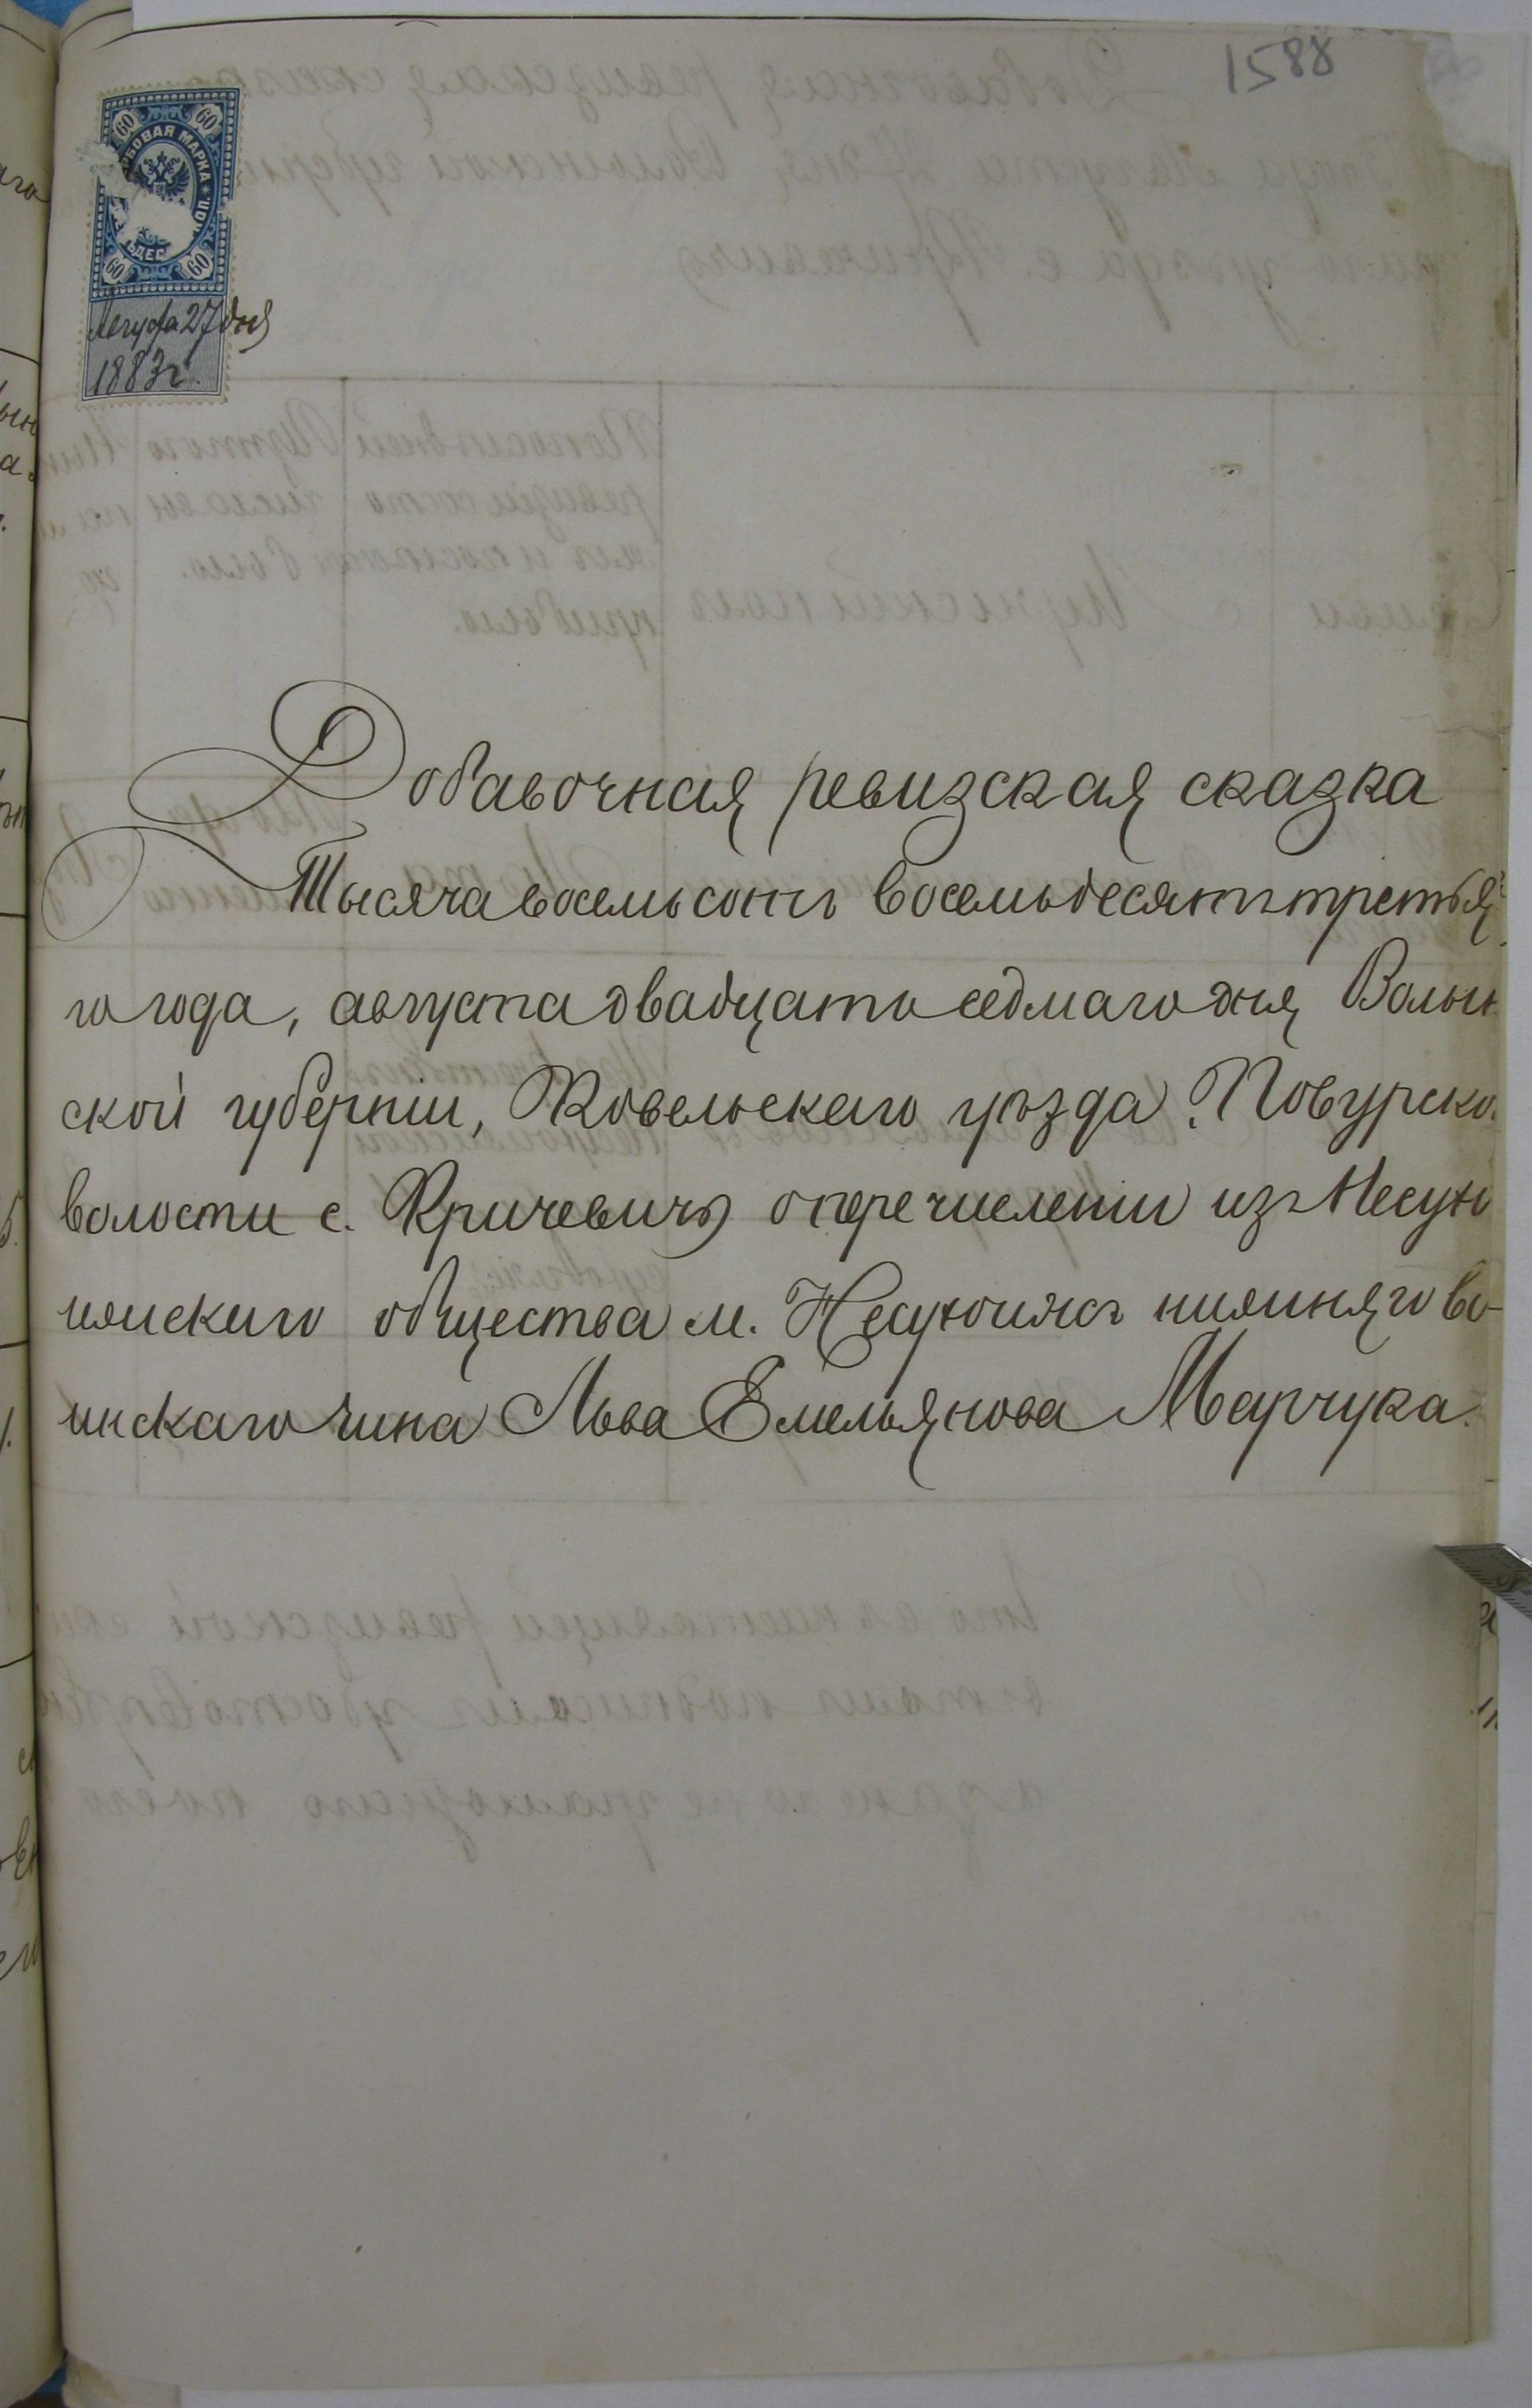 1588
60 60
ГЕРБОВАЯ МАРКА
60 60
Августа 27 дня
1883 г.
Добавочная ревизская сказка
Тысяча восемьсотъ восемьдесятъ третья
го года, августа двадцать седмаго дня Волын
ской губерніи, Ковельскаго уѣзда, Повурско
волости с. Кричевичъ о перечисленіи из Несухо
ижскаго общества м. Несухоижъ нижняго во-
инскаго чина Льва Емельянова Марчука.